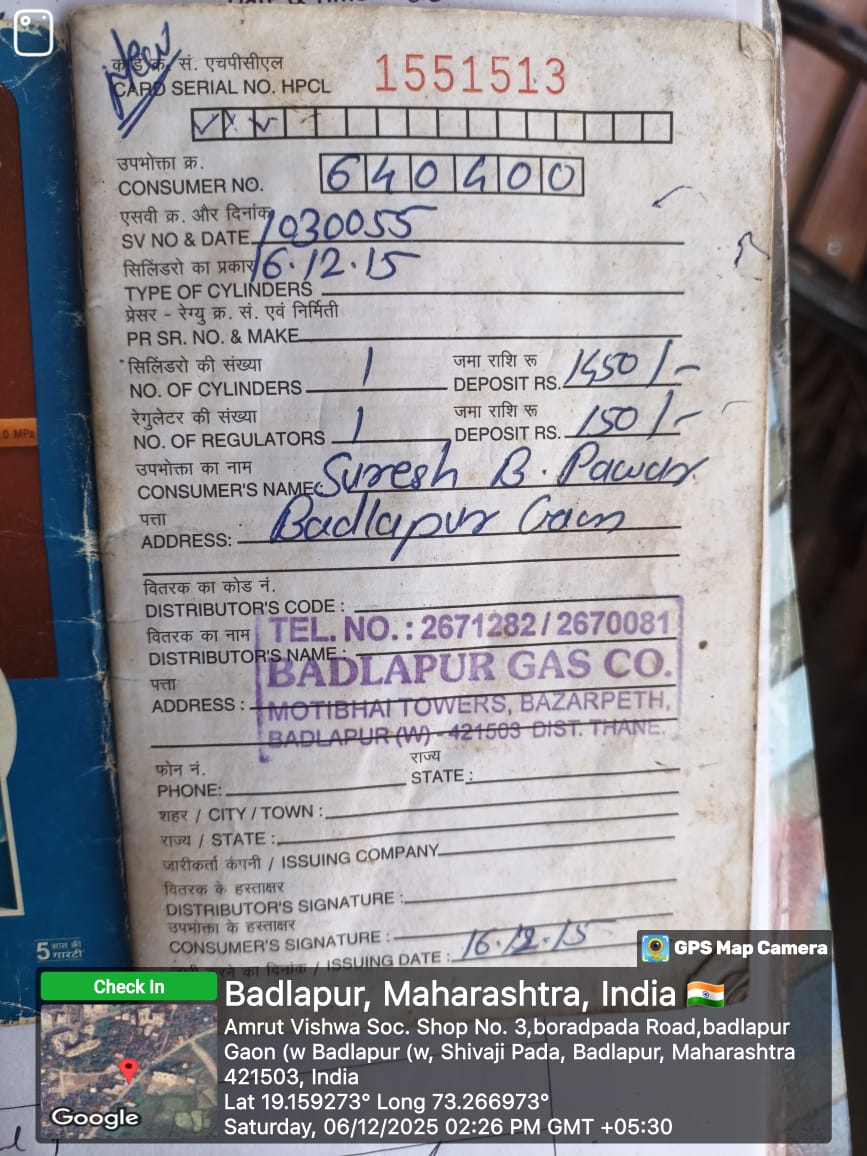 New
कार्ड क्र. सं. एचपीसीएल
CARD SERIAL NO. HPCL 1551513
उपभोक्ता क्र.
CONSUMER NO. 640400
एसवी क्र. और दिनांक
SV NO & DATE 1030055
सिलिंडरो का प्रकार 16.12.15
TYPE OF CYLINDERS
प्रेसर - रेग्यु क्र. सं. एवं निर्मिती
PR SR. NO. & MAKE
सिलिंडरो की संख्या 1 जमा राशि रू
NO. OF CYLINDERS DEPOSIT RS. 1450/-
रेगुलेटर की संख्या 1 जमा राशि रू
NO. OF REGULATORS DEPOSIT RS. 150/-
उपभोक्ता का नाम
CONSUMER'S NAME: Suresh B. Pawar
पत्ता
ADDRESS: Badlapur Gaon
वितरक का कोड नं.
DISTRIBUTOR'S CODE :
वितरक का नाम TEL. NO. : 2671282 / 2670081
DISTRIBUTOR'S NAME : BADLAPUR GAS CO.
पत्ता
ADDRESS : MOTIBHAI TOWERS, BAZARPETH,
BADLAPUR (W) - 421503 DIST. THANE.
फोन नं. राज्य
PHONE: STATE :
शहर / CITY / TOWN :
राज्य / STATE :
जारीकर्ता कंपनी / ISSUING COMPANY
वितरक के हस्ताक्षर
DISTRIBUTOR'S SIGNATURE :
उपभोक्ता के हस्ताक्षर
CONSUMER'S SIGNATURE :
करने का दिनांक / ISSUING DATE : 16.12.15
.0 MPa
5 साल की गारंटी
GPS Map Camera
Check In
Badlapur, Maharashtra, India
Amrut Vishwa Soc. Shop No. 3,boradpada Road,badlapur
Gaon (w Badlapur (w, Shivaji Pada, Badlapur, Maharashtra
421503, India
Lat 19.159273° Long 73.266973°
Saturday, 06/12/2025 02:26 PM GMT +05:30
Google